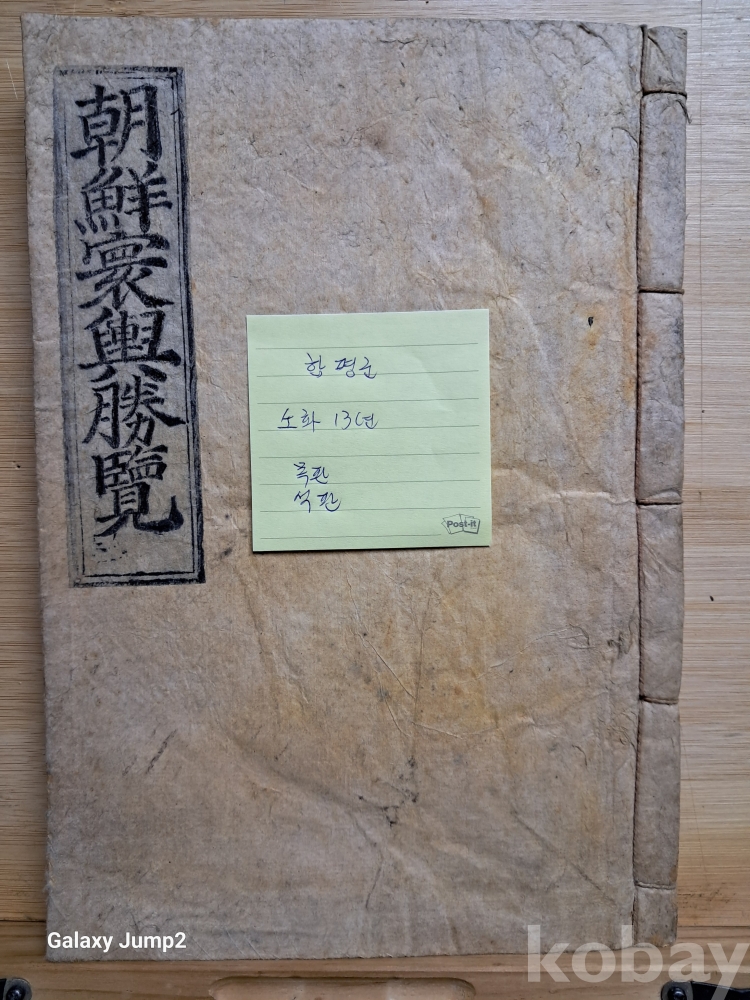 朝鮮寰輿勝覽
함평군
소화 13년
목판
석판
Post-it
Galaxy Jump2
kobay